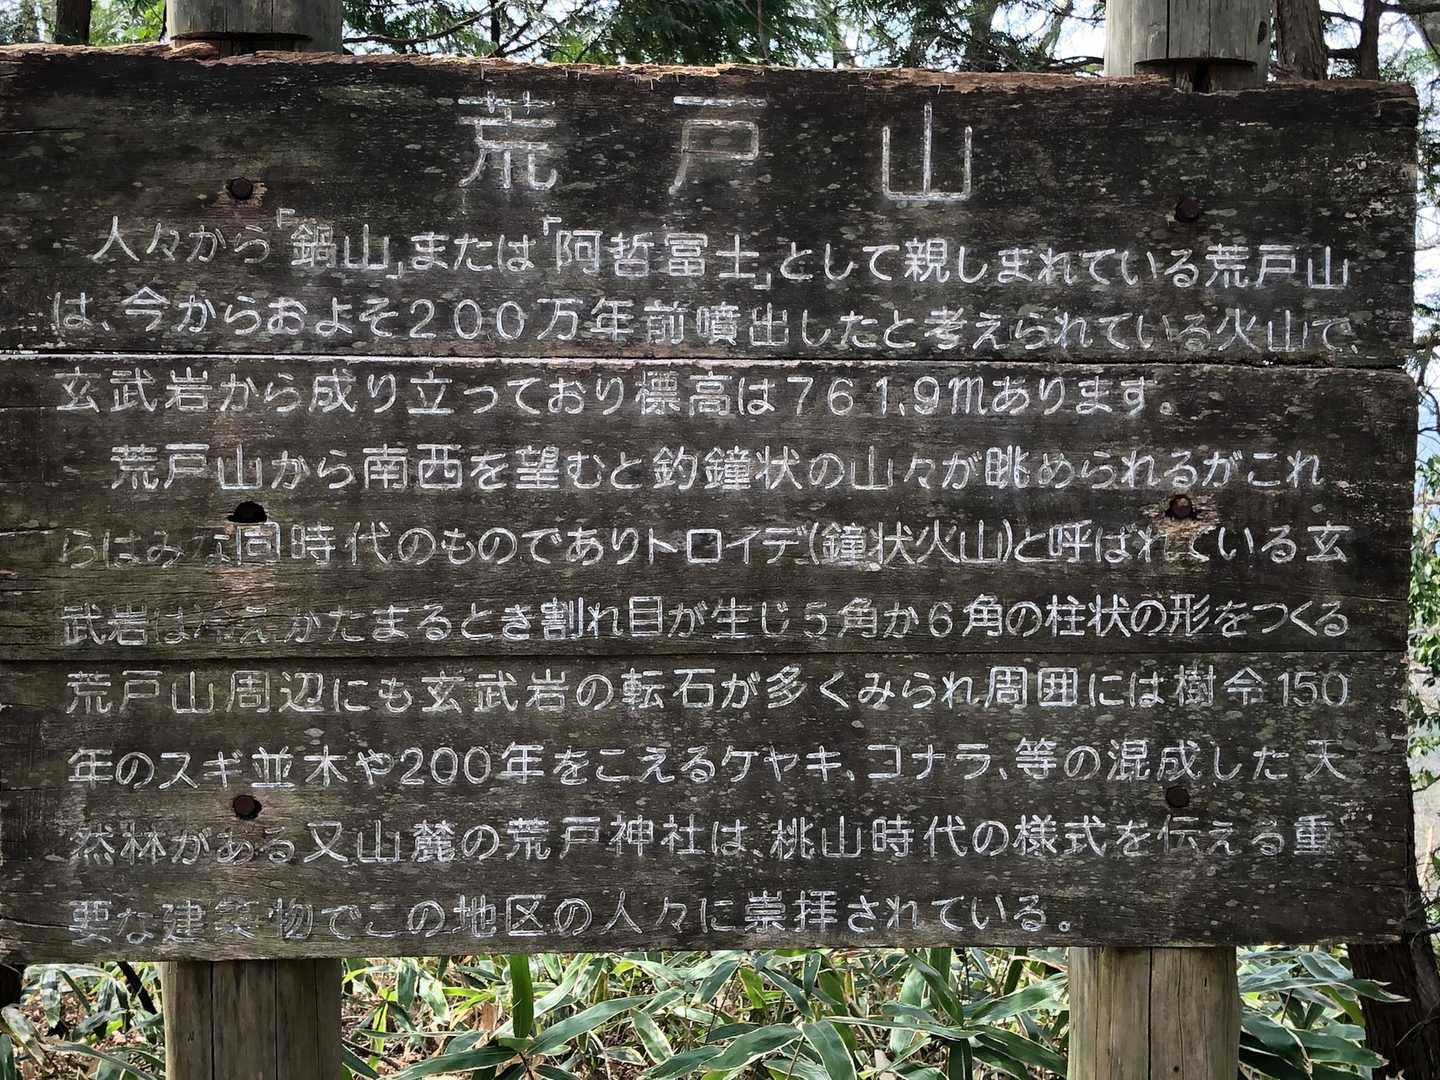 荒戸山
人々から「鍋山」または「阿哲冨士」として親しまれている荒戸山
は、今からおよそ200万年前噴出したと考えられている火山で、
玄武岩から成り立っており標高は761.9mあります。
荒戸山から南西を望むと釣鐘状の山々が眺められるがこれ
らはみな同時代のものでありトロイデ(鐘状火山)と呼ばれている玄
武岩は冷えかたまるとき割れ目が生じ5角か6角の柱状の形をつくる
荒戸山周辺にも玄武岩の転石が多くみられ周囲には樹令150
年のスギ並木や200年をこえるケヤキ、コナラ、等の混成した天
然林がある又山麓の荒戸神社は、桃山時代の様式を伝える重
要な建築物でこの地区の人々に崇拝されている。